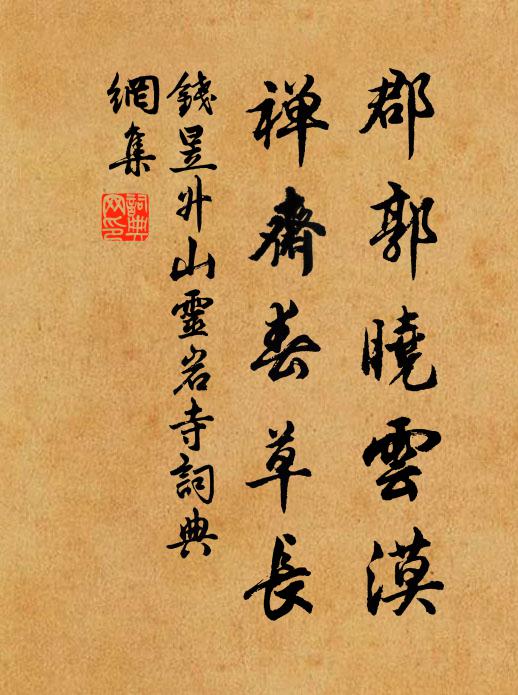 郡郭曉雲漠
禅齋春草長
錢昱升山靈岩寺詞典
網集
詞典
网印